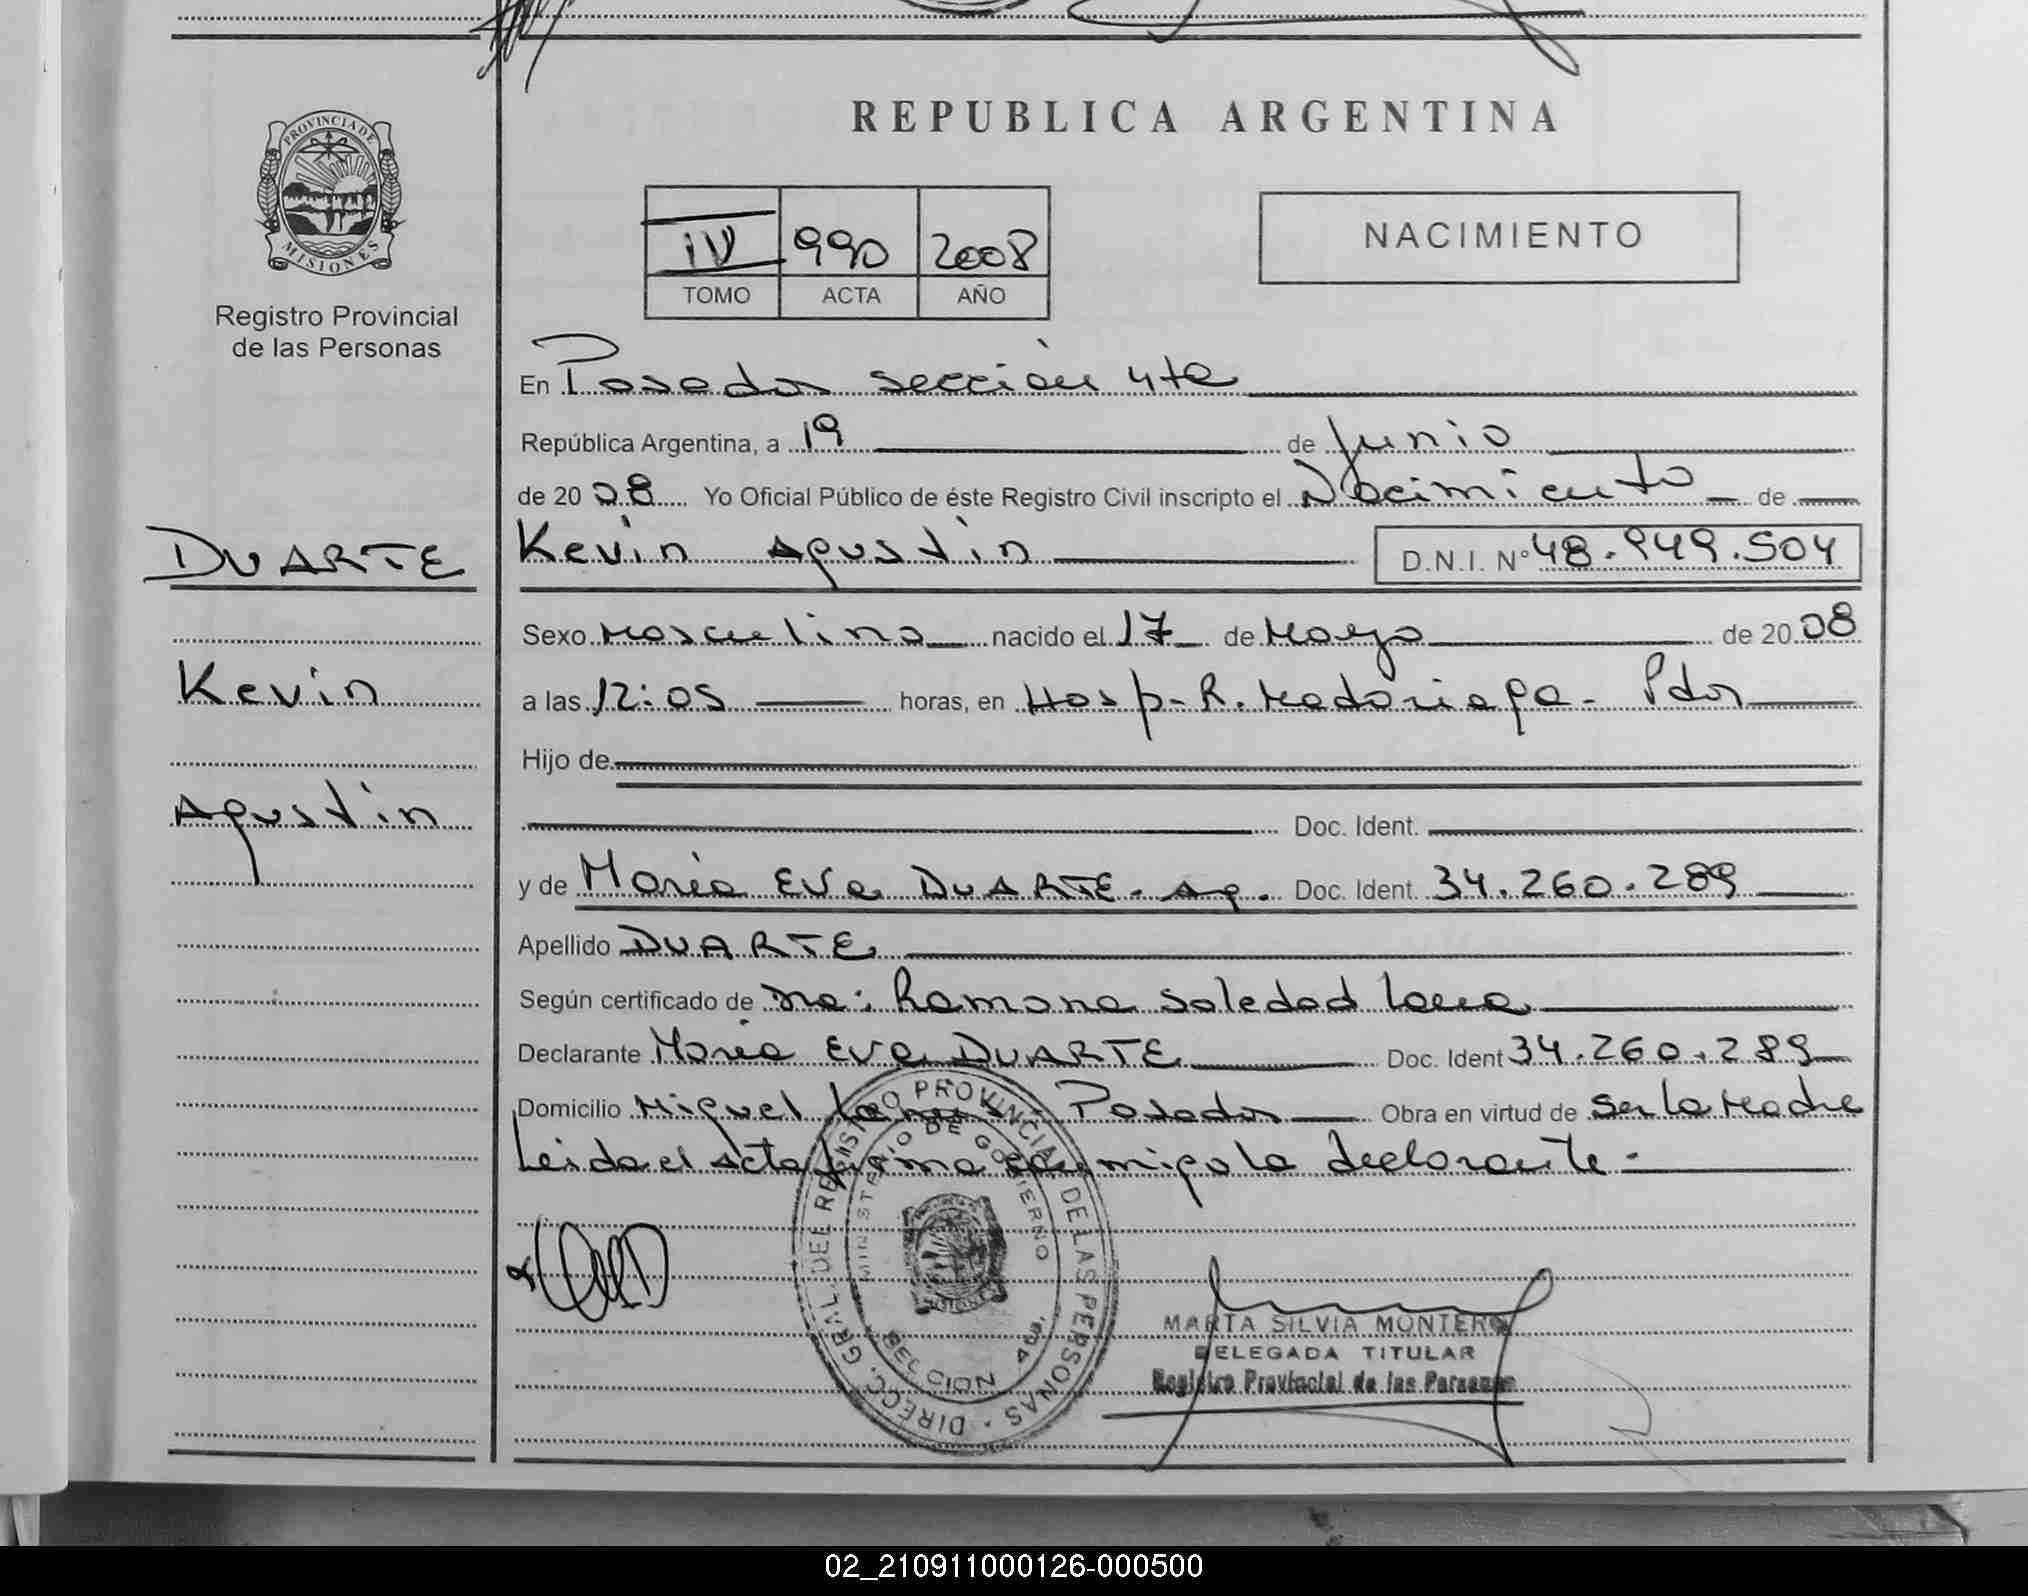 REPUBLICA ARGENTINA
PROVINCIA DE
MISIONES
Registro Provincial
de las Personas
IV 990 2008
TOMO ACTA AÑO
NACIMIENTO
En Posadas sección 4ta
República Argentina, a 19 de Junio
de 20 08 Yo Oficial Público de éste Registro Civil inscripto el Nacimiento de
DUARTE
Kevin Agustin D.N.I. Nº 48.949.504
Sexo Masculino nacido el 17 de Mayo de 20 08
Kevin
a las 12:05 horas, en Hosp. R. Madariaga - Pdas
Hijo de
Agustin
Doc. Ident.
y de Maria Eva DUARTE - Ag. Doc. Ident. 34.260.289
Apellido DUARTE
Según certificado de Ramona Soledad
Declarante Maria Eva DUARTE Doc. Ident 34.260.289
Domicilio Miguel Posadas Obra en virtud de ser la Madre
Leida el acta firma conmigo la declarante.-
DIRECC. GRAL. DEL REGISTRO PROVINCIAL DE LAS PERSONAS
MINISTERIO DE GOBIERNO
SECCION 4ta.
MARTA SILVIA MONTERO
DELEGADA TITULAR
Registro Provincial de las Personas
02_210911000126-000500